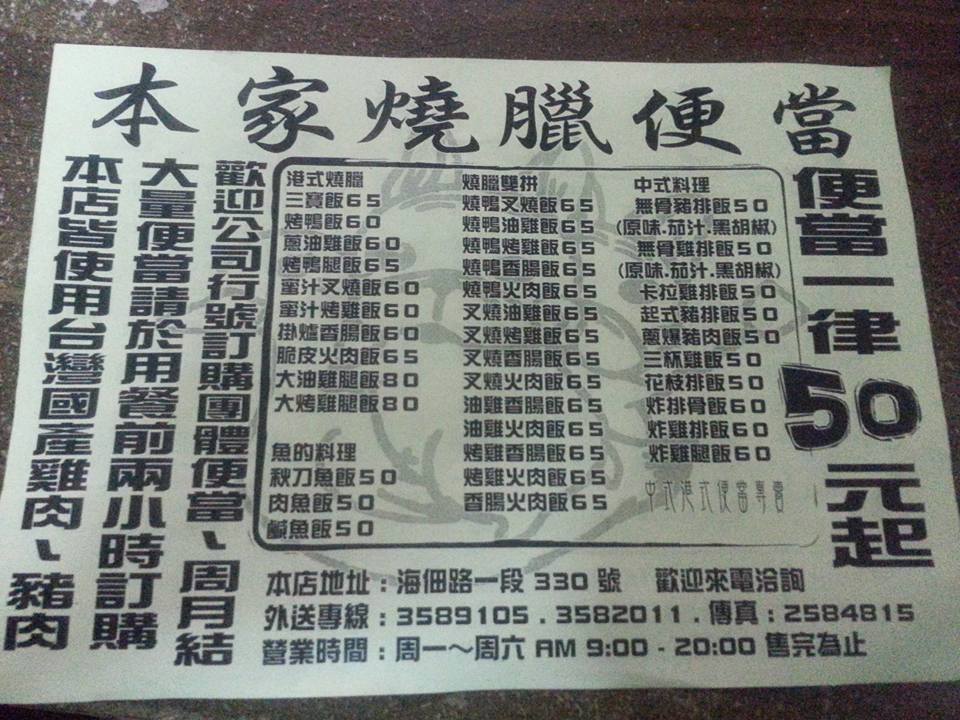 本家燒臘便當
便當一律50元起
歡迎公司行號訂購團體便當、周月結
大量便當請於用餐前兩小時訂購
本店皆使用台灣國產雞肉、豬肉
港式燒臘
三寶飯65
烤鴨飯60
蔥油雞飯60
烤鴨腿飯65
蜜汁叉燒飯60
蜜汁烤雞飯60
掛爐香腸飯60
脆皮火肉飯65
大油雞腿飯80
大烤雞腿飯80
魚的料理
秋刀魚飯50
肉魚飯50
鹹魚飯50
燒臘雙拼
燒鴨叉燒飯65
燒鴨油雞飯65
燒鴨烤雞飯65
燒鴨香腸飯65
燒鴨火肉飯65
叉燒油雞飯65
叉燒烤雞飯65
叉燒香腸飯65
叉燒火肉飯65
油雞香腸飯65
油雞火肉飯65
烤雞香腸飯65
烤雞火肉飯65
香腸火肉飯65
中式料理
無骨豬排飯50
(原味.茄汁.黑胡椒)
無骨雞排飯50
(原味.茄汁.黑胡椒)
卡拉雞排飯50
起式豬排飯50
蔥爆豬肉飯50
三杯雞飯50
花枝排飯50
炸排骨飯60
炸雞排飯60
炸雞腿飯60
中式港式便當專賣
本店地址：海佃路一段 330 號 歡迎來電洽詢
外送專線：3589105 . 3582011 . 傳真：2584815
營業時間：周一～周六 AM 9:00 - 20:00 售完為止